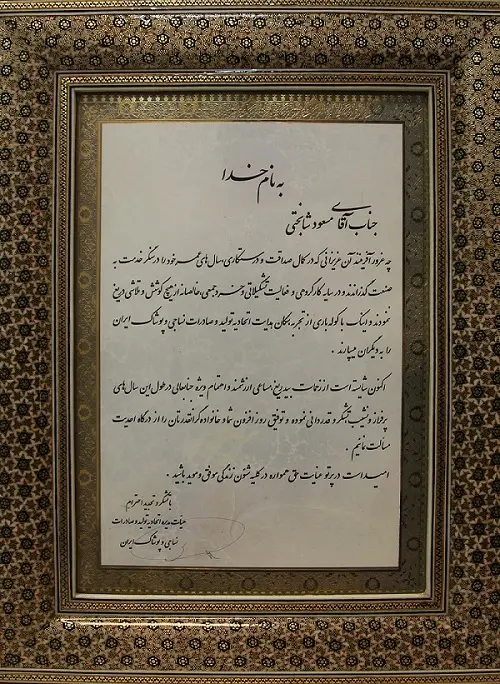 به نام خدا
جناب آقای مسعود شابختی
چه غرور آفرینند آن عزیزانی که در کمال صداقت و درستکاری، سال های عمر خود را در سنگر خدمت به
صنعت گذرانده و در سایه کار گروهی و فعالیت تشکیلاتی و خرد جمعی، خالصانه از هیچ کوشش و تلاشی دریغ
ننمودند و اینک با کوله باری از تجربه سکان هدایت اتحادیه تولید و صادرات نساجی و پوشاک ایران
را به دیگران میسپارند .
اکنون شایسته است از زحمات بیدریغ، مساعی ارزشمند و اهتمام ویژه جنابعالی در طول این سال های
پرفراز و نشیب تشکر و قدردانی نموده و توفیق روز افزون شما و خانواده گرانقدرتان را از درگاه احدیت
مسألت نمائیم .
امید است در پرتو عنایت حق همواره در کلیه شئون زندگی موفق و موید باشید .
با تشکر و تجدید احترام
هیات مدیره اتحادیه تولید و صادرات
نساجی و پوشاک ایران